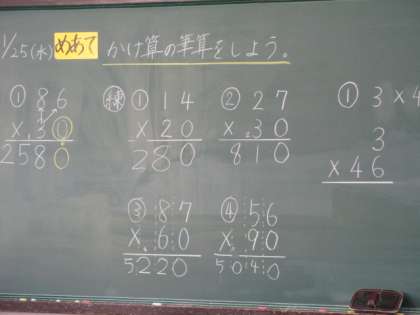 1/25(水) めあて かけ算の筆算をしよう。
① 86
×30
2580
練 ① 14
×20
280
② 27
×30
810
③ 87
×60
5220
④ 56
×90
5040
① 3×4
3
×46